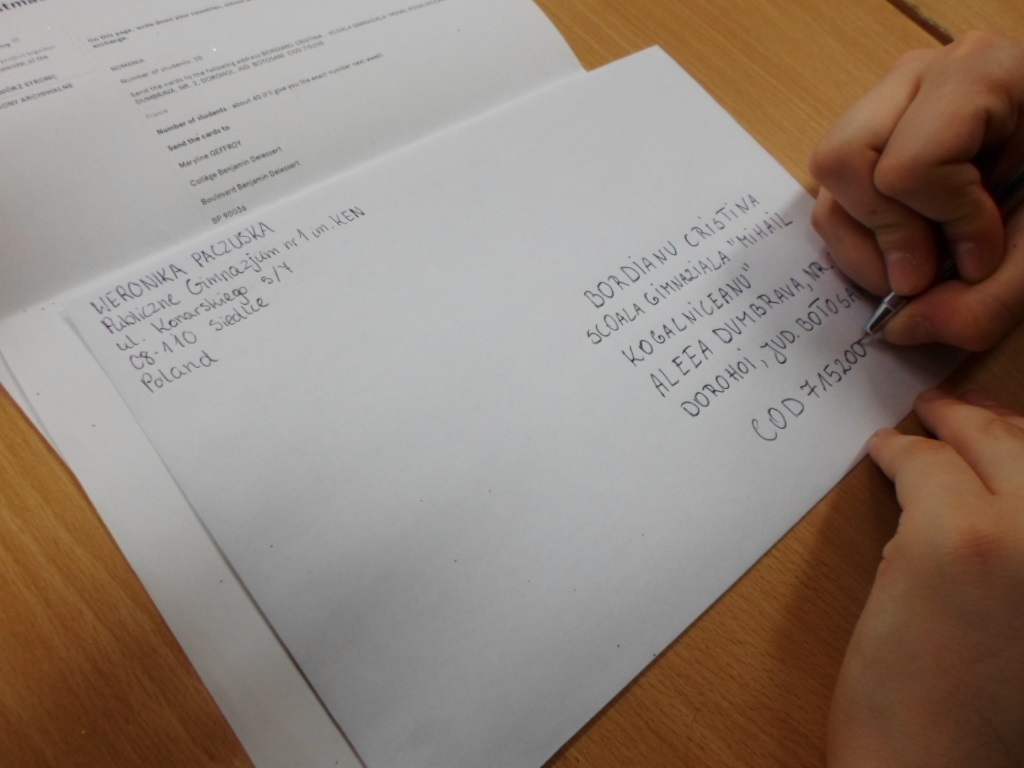 On this page, write down your
exchange.
ROMANIA
Number of students: 28
Send the cards to the following address: BORDIANU CRISTINA
DUMBRAVA, NR. 7, DOROHOI, JUD BOTOSANI, COD 715200
France
Number of students: about 40 (I'll give you the exact number next week)
Send the cards to
Maryline GEFFROY
Collège Benjamin Delessert
Boulevard Benjamin Delessert
BP 90036
WERONIKA PACZUSKA
Publiczne Gimnazjum nr 1 im. KEN
ul. Konarskiego 5/7
08-110 Siedlce
Poland
BORDIANU CRISTINA
SCOALA GIMNAZIALA "MIHAIL
KOGALNICEANU"
ALEEA DUMBRAVA, NR.
DOROHOI, JUD. BOTOSA
COD 715200